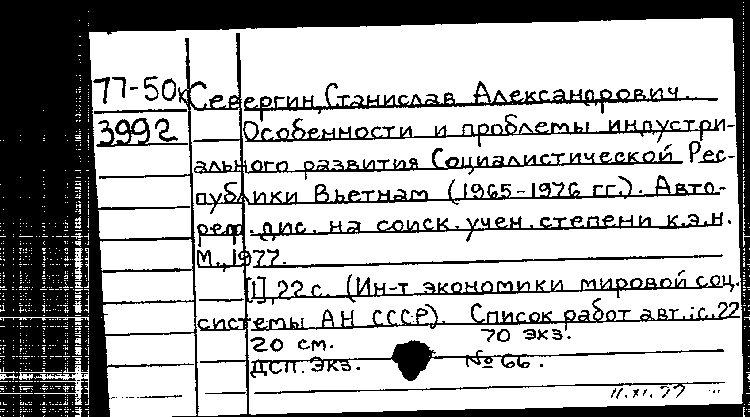 77-50к Севергин, Станислав Александрович.
3992 Особенности и проблемы индустри-
ального развития Социалистической Рес-
публики Вьетнам (1965-1976 гг.). Авто-
реф. дис. на соиск. учен. степени к.э.н.
М., 1977.
[1], 22 с. (Ин-т экономики мировой соц.
системы АН СССР). Список работ авт.: с. 22
20 см. 70 экз.
ДСП. Экз. № 66.
11.XI.77